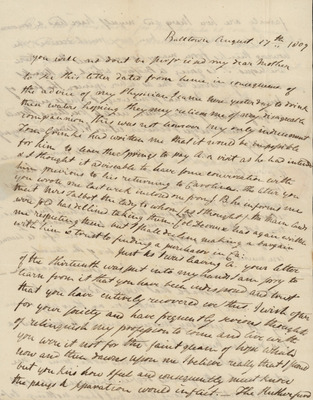 Balltown August 17th 1809
you will no doubt be surprised my dear Mother
to see this letter dated from here in consequence of
the advice of my Physician I came here yesterday to drink
these waters hoping they may relieve me of my disagreeable
companion. This was not however my only inducement
had written me that it would be impossible
for him to leave the Springs to pay us a visit as he had intended
& I thought it advisable to have some conversation with
him previous to his returning to Carolina. The letter you
wrote me last week
that Mrs the lady to whom I thought the
were sold has declined taking them has again written
me respecting them but I hate the idea of making a bargain
with him & trust to finding a purchaser in
Just as I was leaving your letter
of the thirteenth was put into my hands I am sorry to
learn from it that you have been indisposed and trust
that you have entirely recovered ere this I wish often
for your society and have frequently serious thoughts
of relinquishing my profession to come and live with
you were it not for the faint gleam of hope which
now and then dawns upon me I believe really that I should
but you know how and consequently must know
the pangs a separation would inflict. — The Rutherfurd